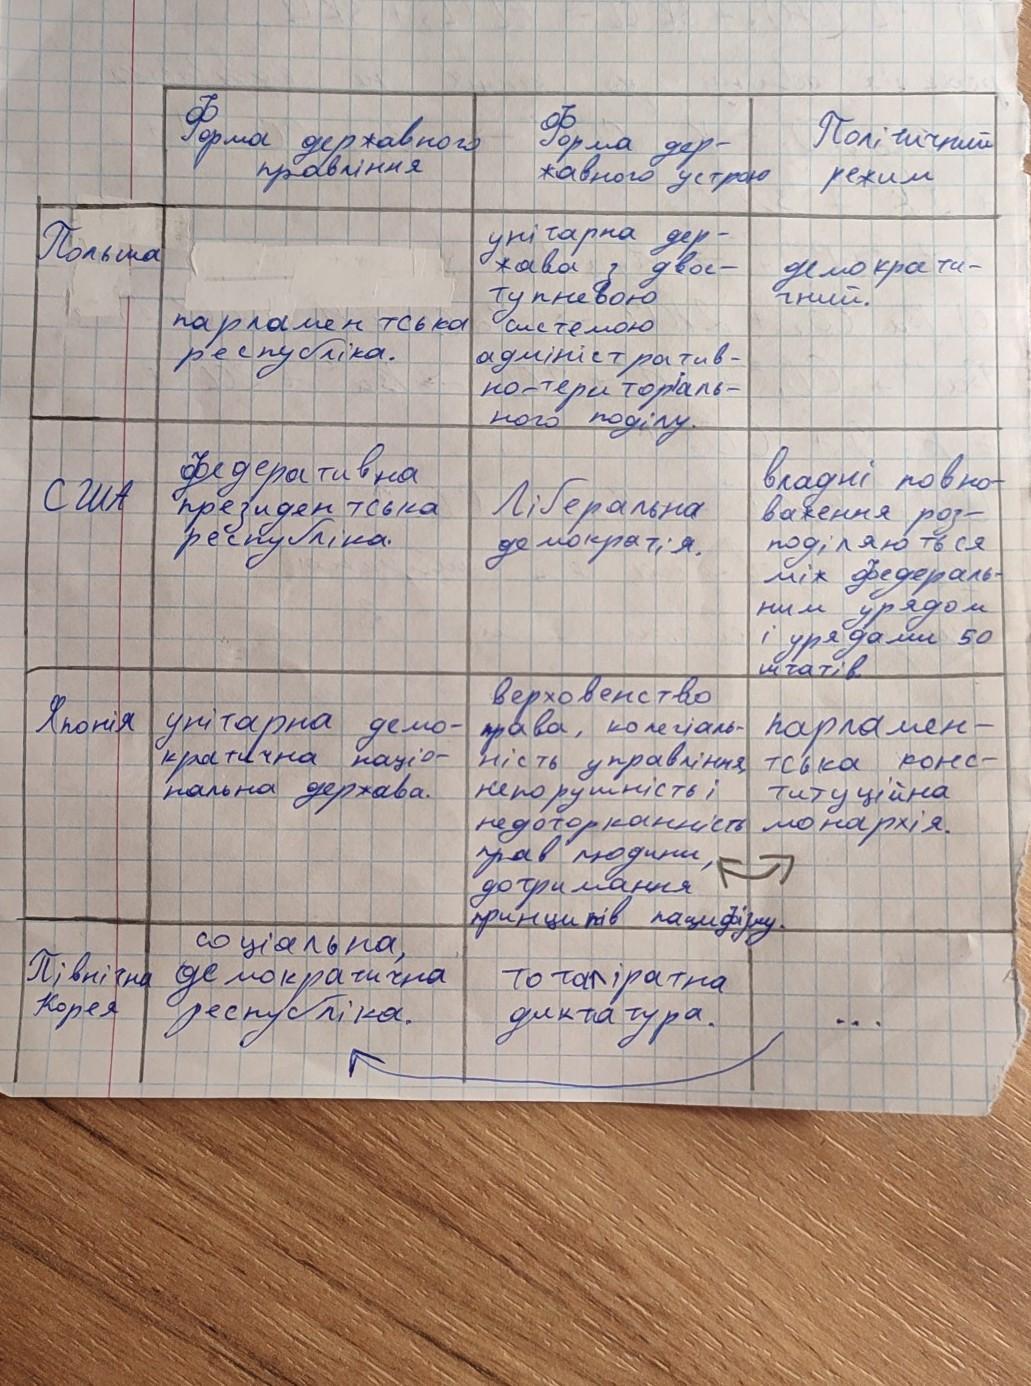 Форма державного
правління
Форма дер-
жавного устрою
Політичний
режим
Польша
парламентська
республіка.
унітарна дер-
жава з двос-
тупневою
системою
адміністратив-
но-територіаль-
ного поділу.
демократи-
чний.
США
федеративна
президентська
республіка.
Ліберальна
демократія.
владні повно-
важення роз-
поділяються
між федераль-
ним урядом
і урядами 50
штатів
Японія
унітарна демо-
кратична націо-
нальна держава.
верховенство
права, колегіаль-
ність управління,
непорушність і
недоторканність
прав людини,
дотримання
принципів пацифізму.
парламен-
тська конс-
титуційна
монархія.
Північна
Корея
соціальна,
демократична
республіка.
тоталіратна
диктатура.
...